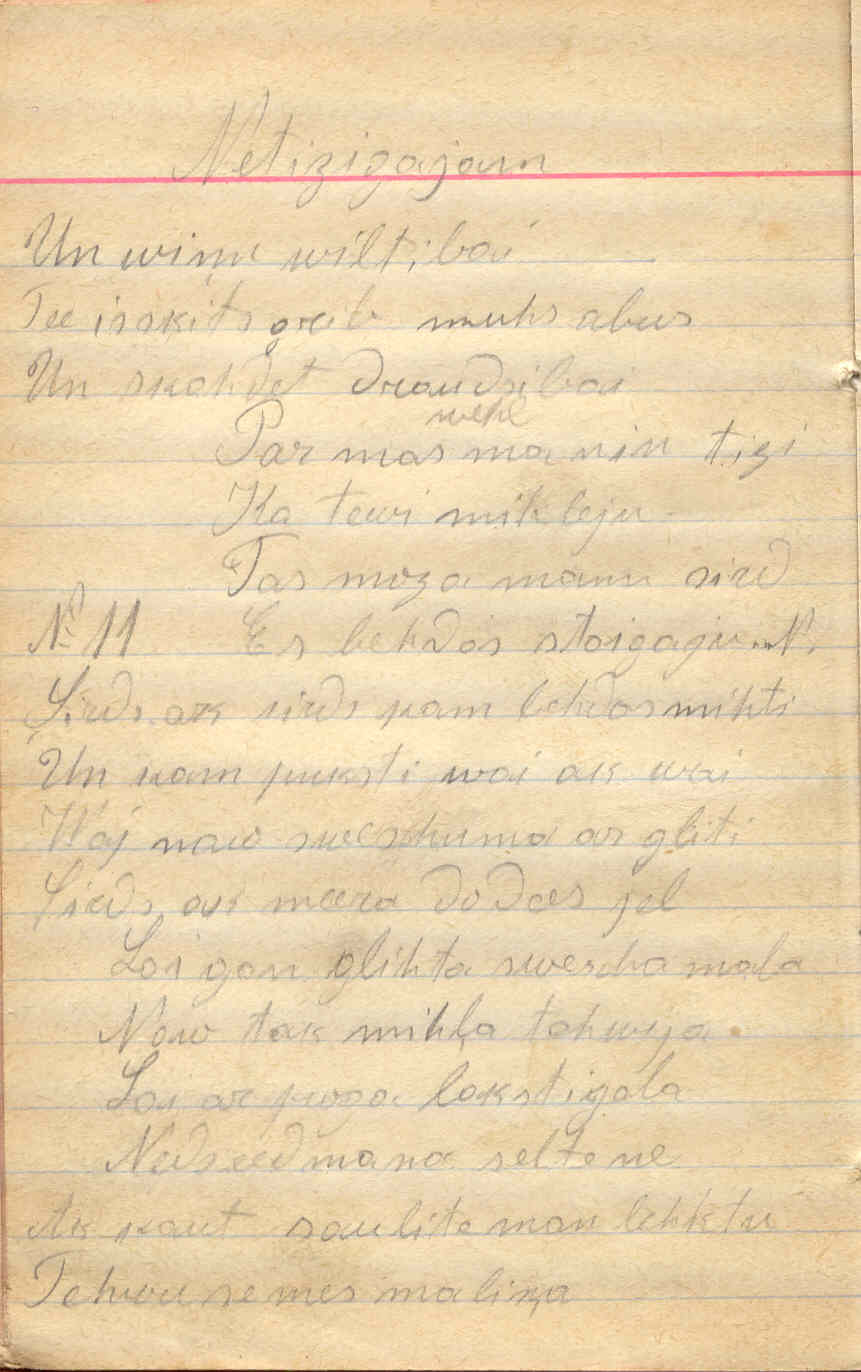 Netizigajam
Un winu wiltibai
Tee isskits grib muhs abus
Un skahdet draudsibai
wehl
Par mas manin tizi
Ka tewi mihleju
Tas moza manu sird
№ 11 Es behdās staigaju
Sirds ak sirds kam behdas mihti
Un kam puksti wai ak wai
Waj naw sweschuma ar gliti
Sirds ak meera dodees jel
Lai gan glihta swescha mala
Naw tak mihļa tehwija
Lai ar poga lakstigala
Nedseed mana seltene
Ak kaut saulite man lehktu
Tehwu semes maliņa